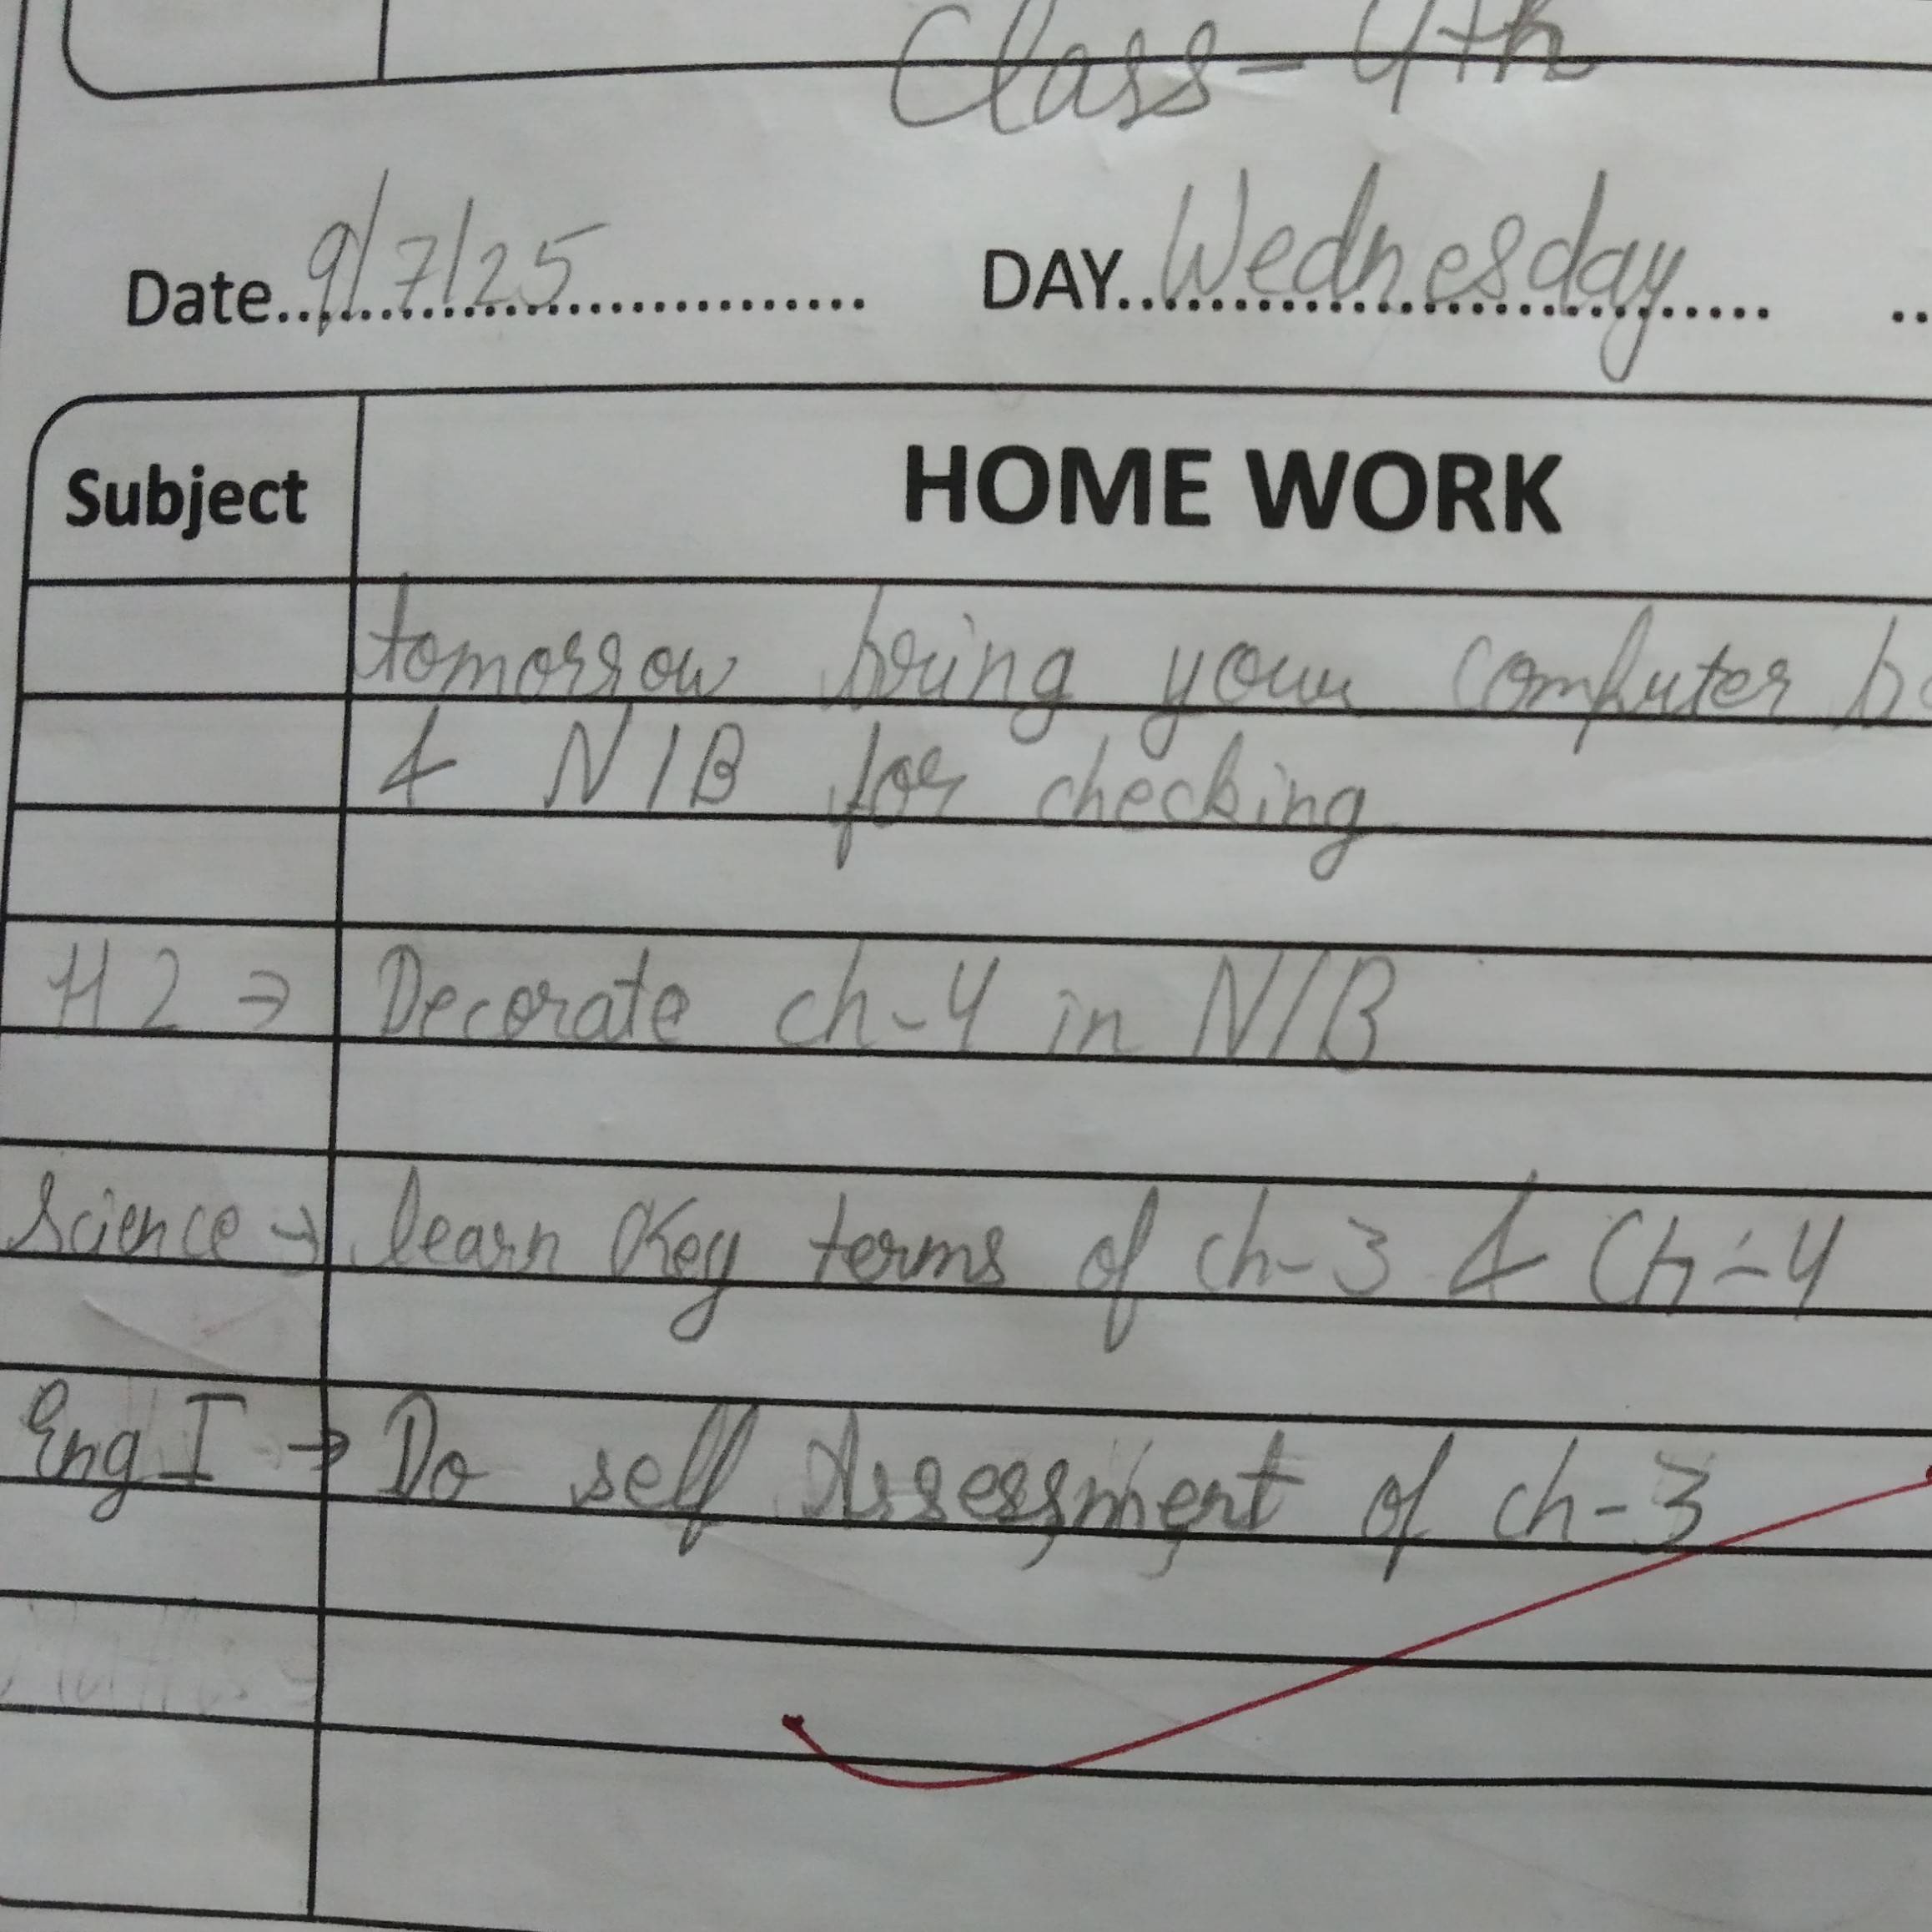 Class- 4th
Date 9/7/25 DAY Wednesday
Subject HOME WORK
tomorrow bring your computer
& N/B for checking
H2 → Decorate ch-4 in N/B
Science → learn Key terms of ch-3 & Ch-4
Eng I → Do self Assessment of ch-3